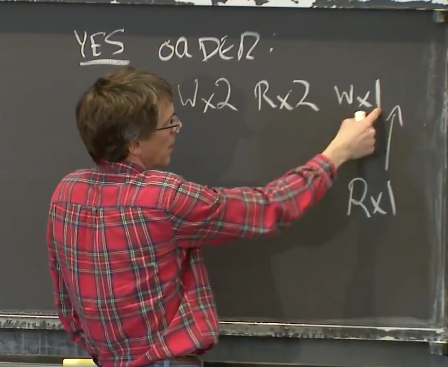 YES ORDER:
Wx2 Rx2 Wx1
Rx1